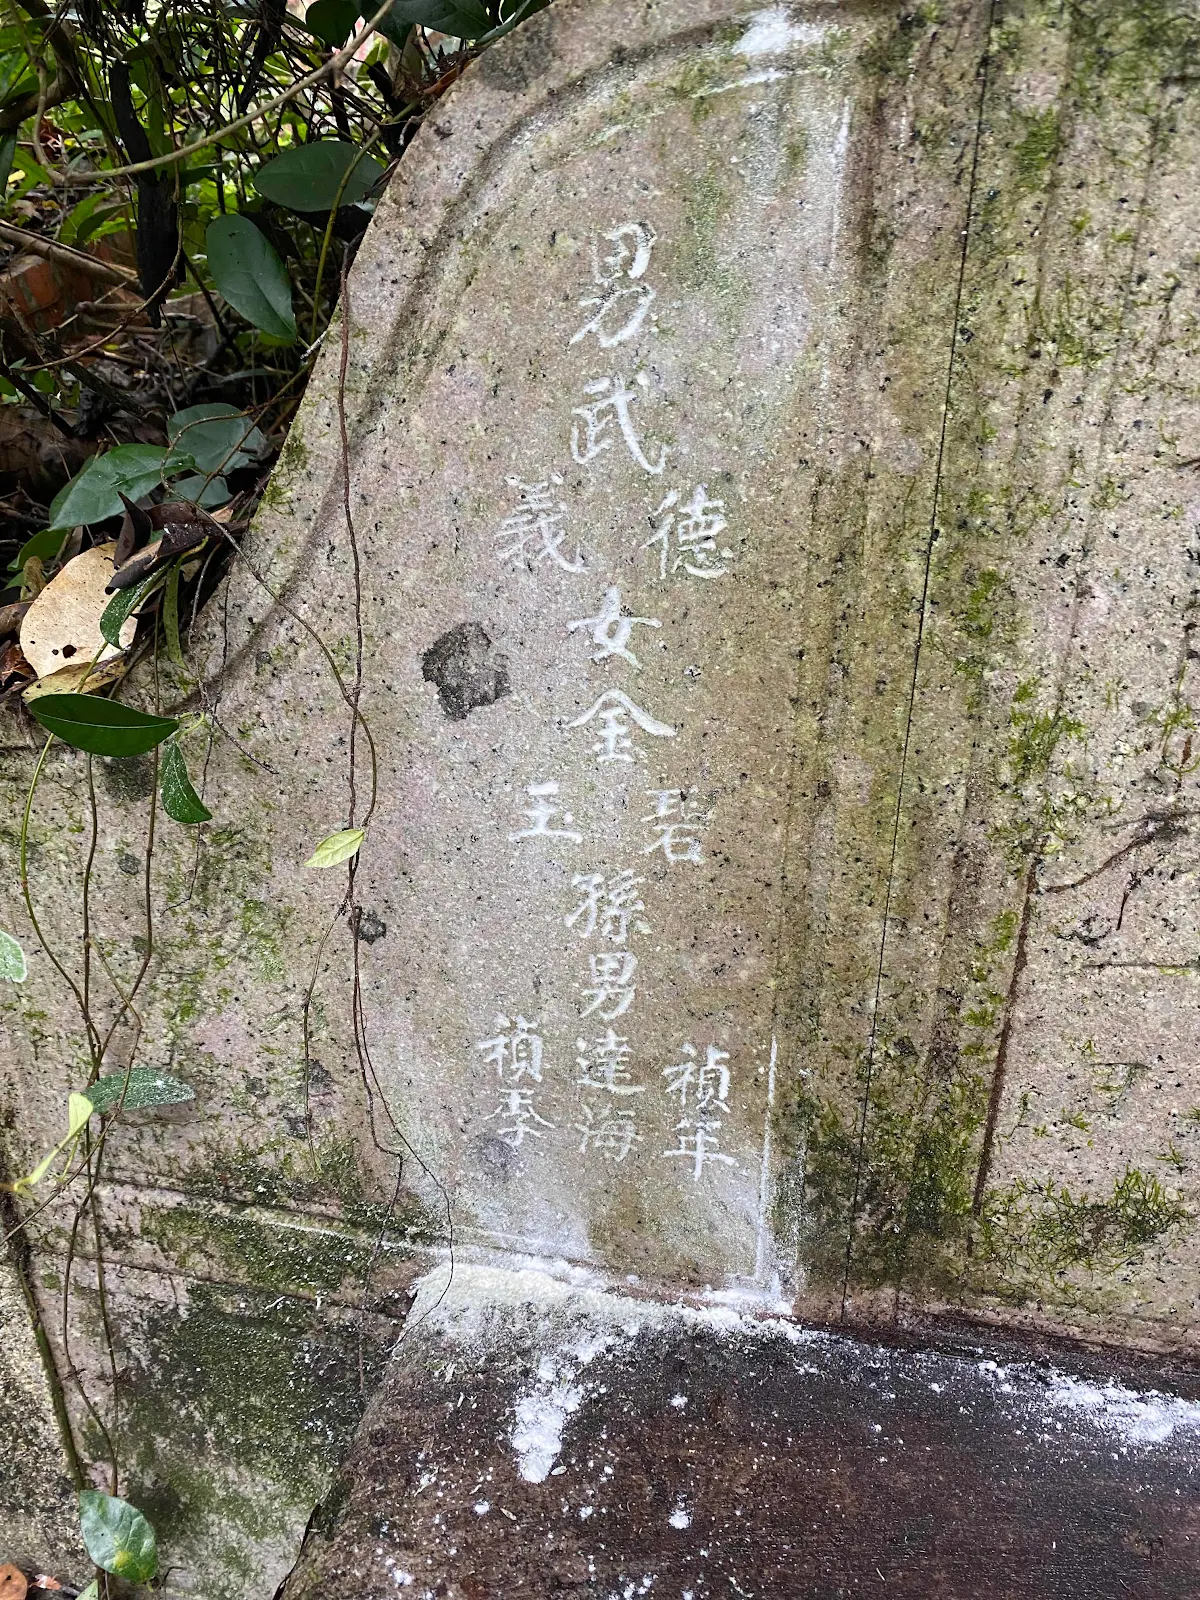 男武
德
義
女金
碧
玉
孫男
禎年
達海
禎季